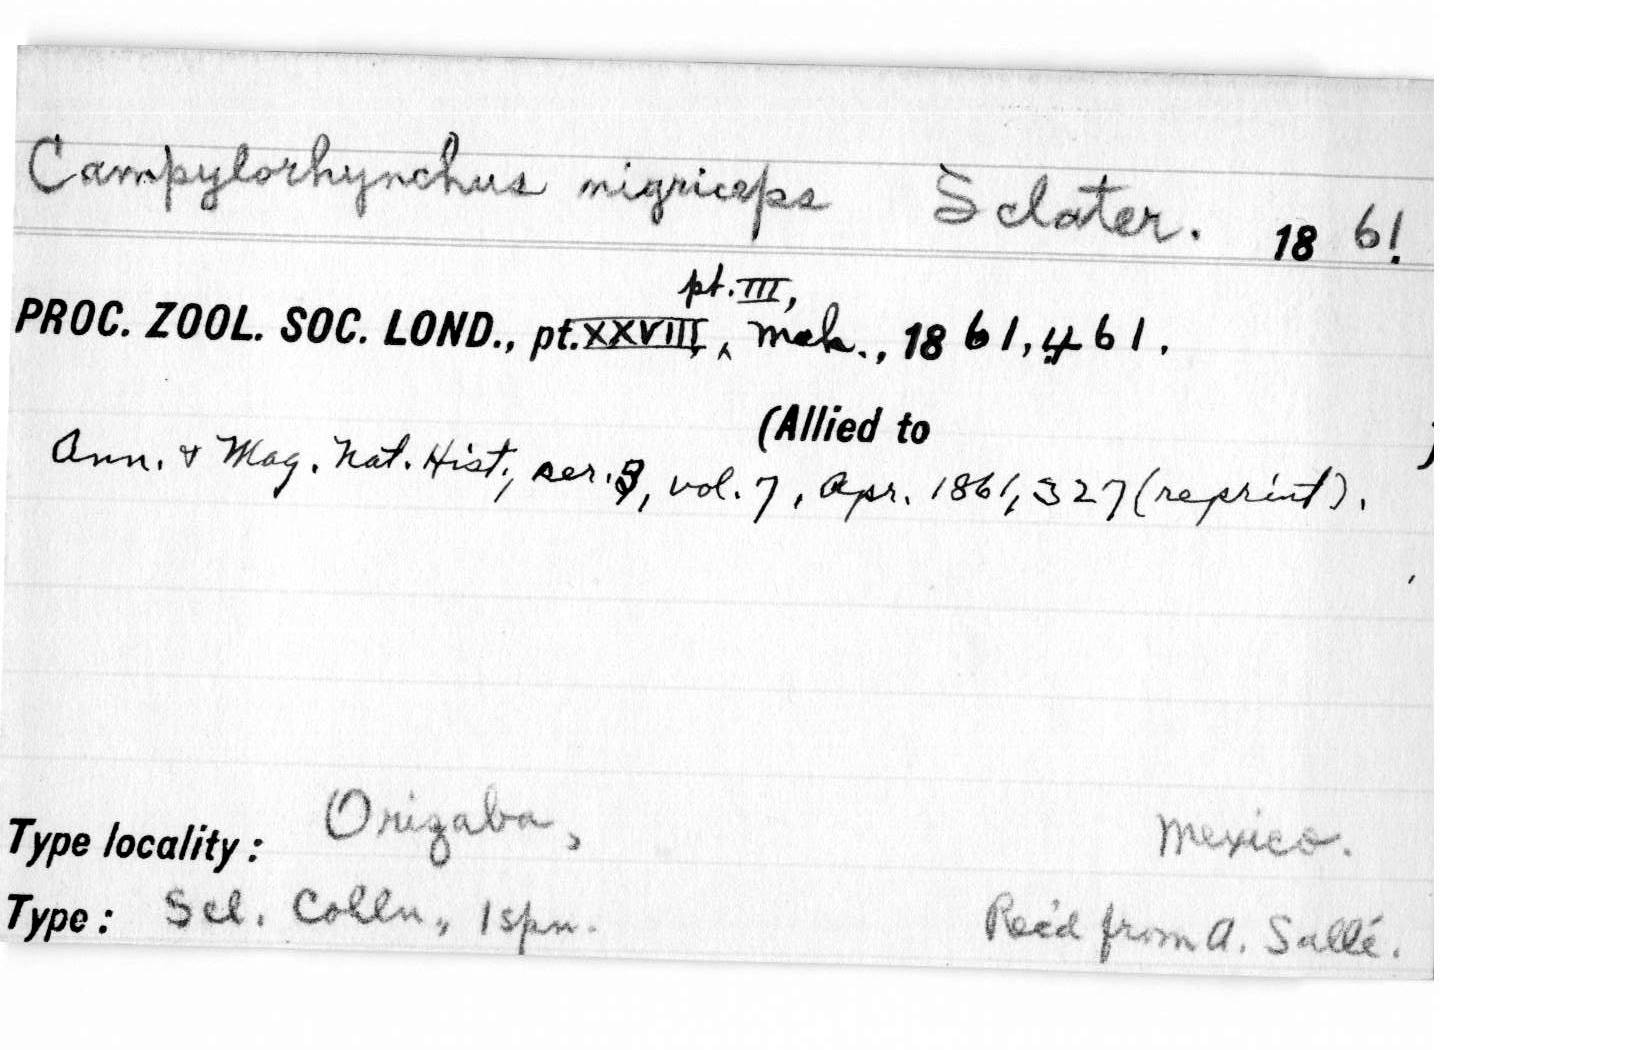 Campylorhynchus nigriceps Sclater. 1861.
pt. III,
PROC. ZOOL. SOC. LOND., pt. XXVIII, ‸ Mch., 1861, 461.
(Allied to )
Ann. & Mag. Nat. Hist., ser. 3, vol. 7, Apr. 1861, 327 (reprint).
Type locality: Orizaba, Mexico.
Type: Scl. Colln., 1 spn. Rec'd from A. Sallé.